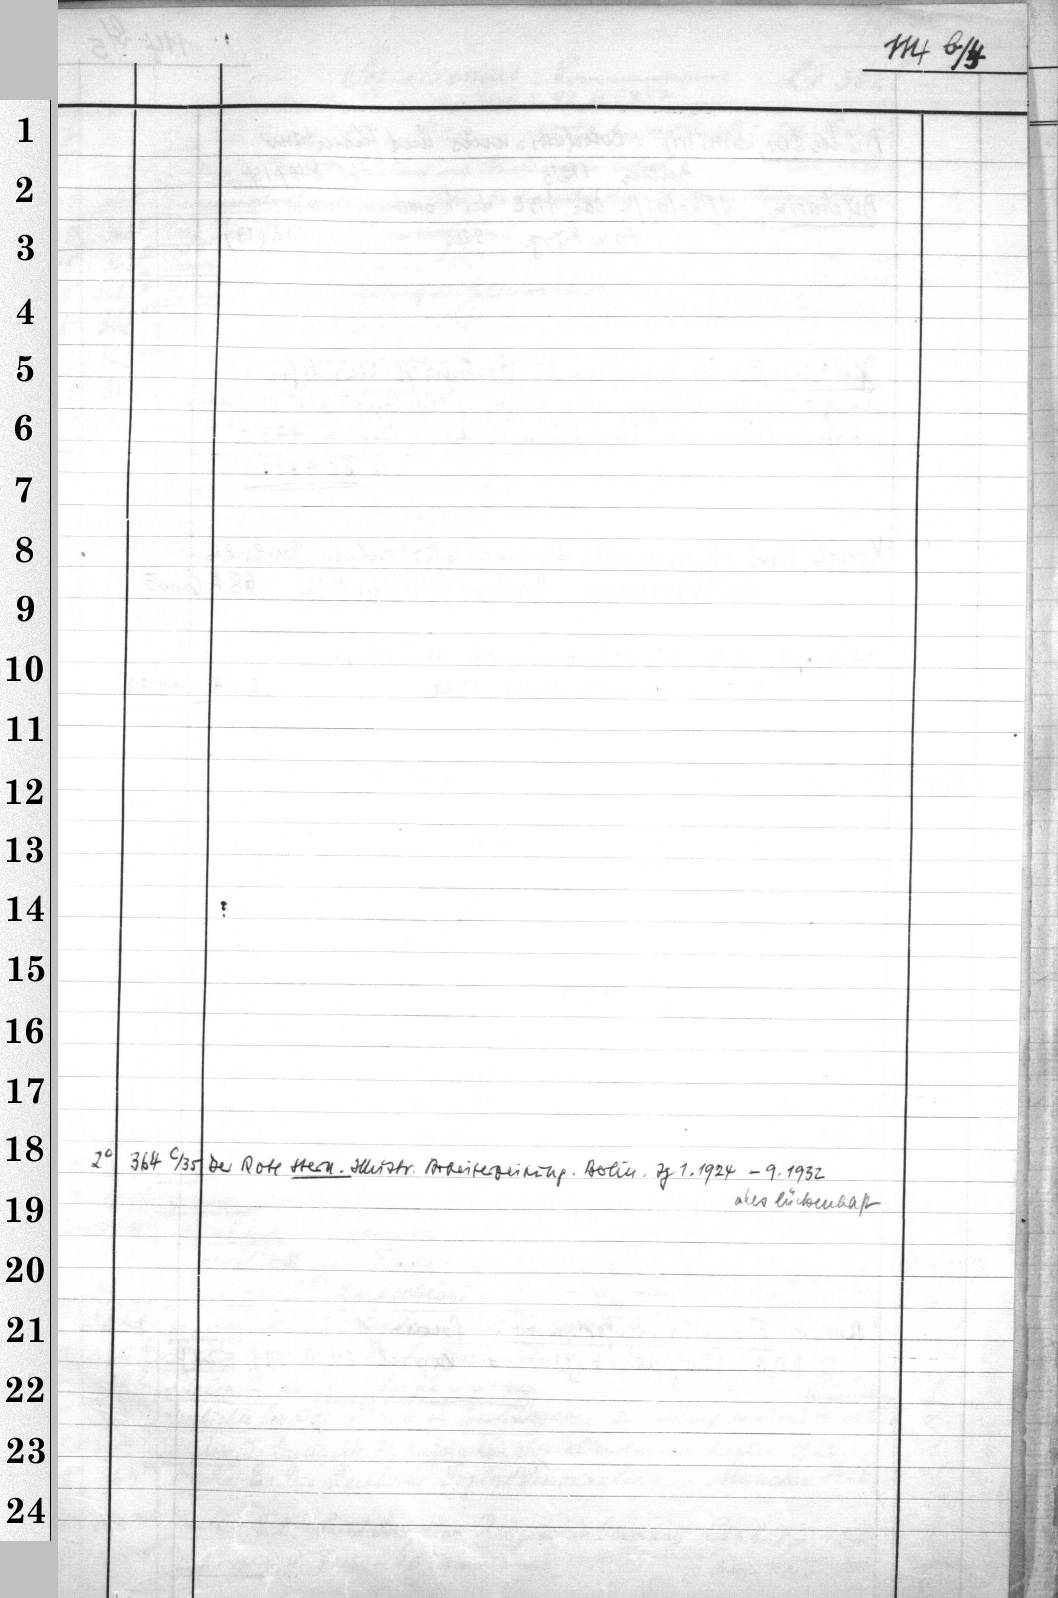 114 b/
1
2
3
4
5
6
7
8
9
10
11
12
13
14
15
16
17
18
2° 364 c/35 Der Rote Stern. Illustr. Arbeiterzeitung. Berlin. Jg 1.1924 – 9.1932
alles lückenhaft
19
20
21
22
23
24